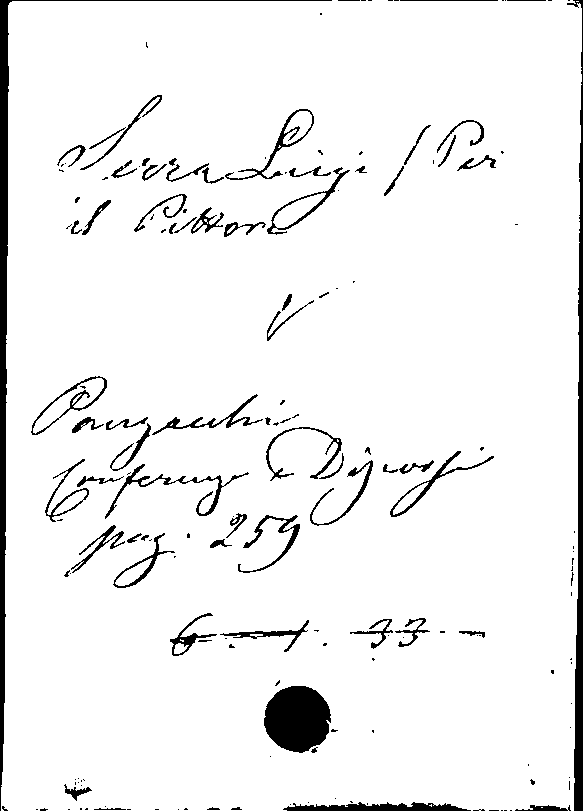 Serra Luigi / Per
il Pittore
V
Panzacchi
Conferenze e Discorsi
pag. 259
6. 1. 33